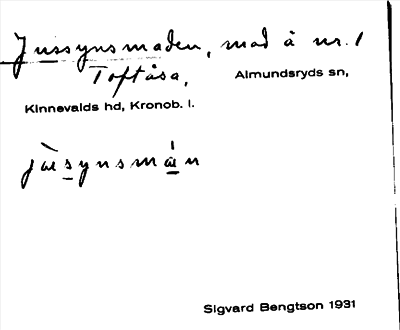 Jussynsmaden, mad å nr. 1
Toftåsa, Almundsryds sn,
Kinnevalds hd, Kronob. l.
jùsynsmán
Sigvard Bengtson 1931